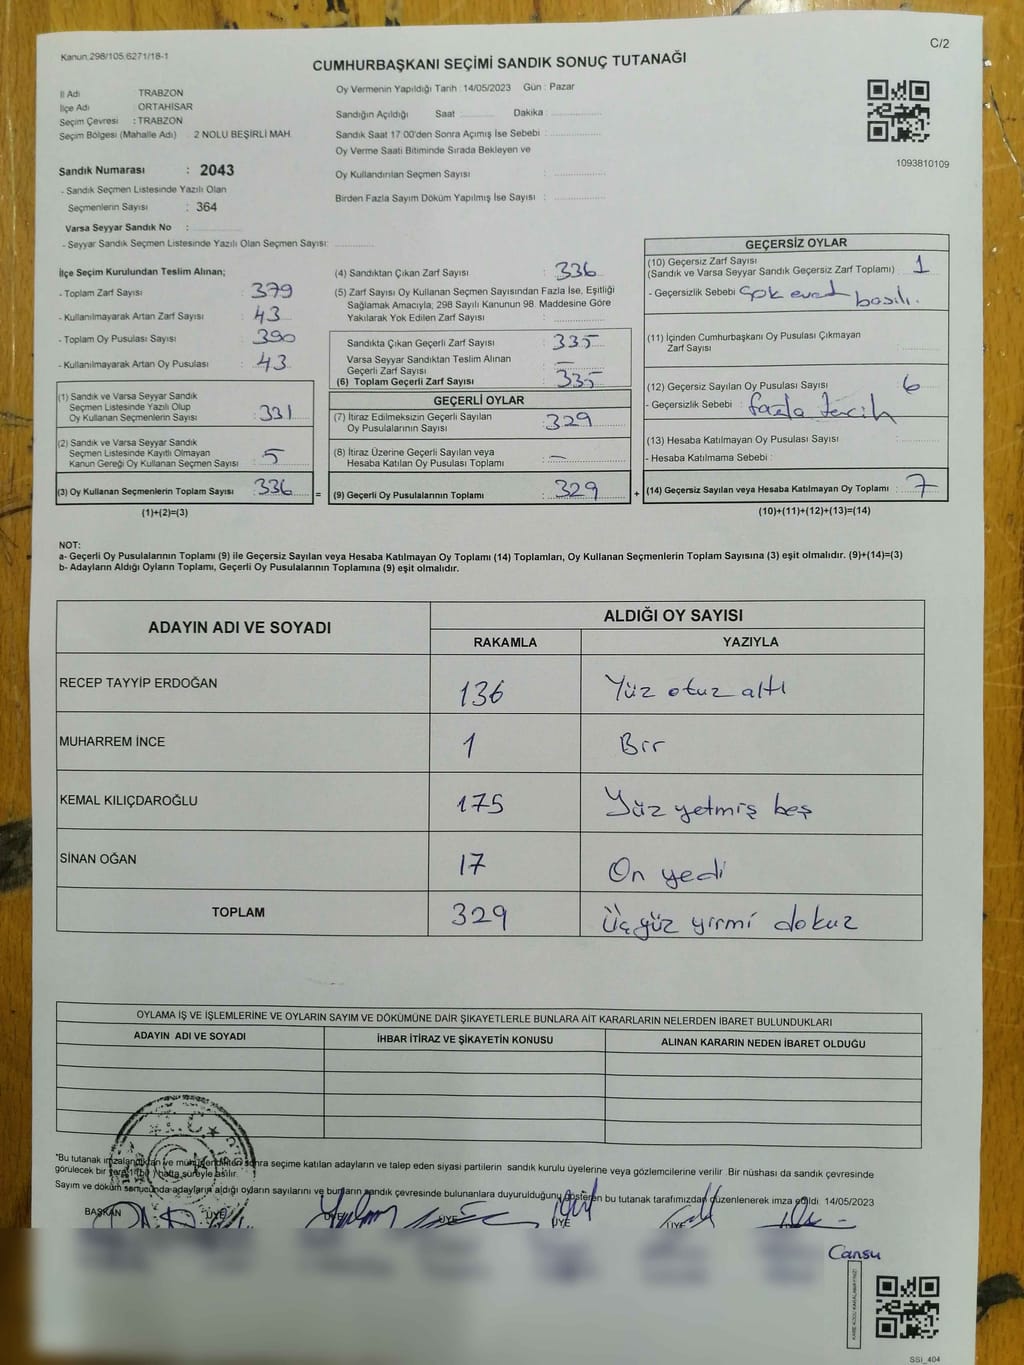 Kanun.298/105.6271/18-1
C/2
CUMHURBAŞKANI SEÇİMİ SANDIK SONUÇ TUTANAĞI
İl Adı TRABZON
İlçe Adı ORTAHİSAR
Seçim Çevresi : TRABZON
Seçim Bölgesi (Mahalle Adı) . 2 NOLU BEŞİRLİ MAH.
Sandık Numarası : 2043
- Sandık Seçmen Listesinde Yazılı Olan
Seçmenlerin Sayısı : 364
Varsa Seyyar Sandık No :
- Seyyar Sandık Seçmen Listesinde Yazılı Olan Seçmen Sayısı:
Oy Vermenin Yapıldığı Tarih : 14/05/2023 Gün : Pazar
Sandığın Açıldığı Saat Dakika :
Sandık Saat 17.00'den Sonra Açılmış İse Sebebi :
Oy Verme Saati Bitiminde Sırada Bekleyen ve
Oy Kullandırılan Seçmen Sayısı :
Birden Fazla Sayım Döküm Yapılmış İse Sayısı :
1093810109
İlçe Seçim Kurulundan Teslim Alınan;
- Toplam Zarf Sayısı : 379
- Kullanılmayarak Artan Zarf Sayısı : 43
- Toplam Oy Pusulası Sayısı : 390
- Kullanılmayarak Artan Oy Pusulası : 43
(1) Sandık ve Varsa Seyyar Sandık
Seçmen Listesinde Yazılı Olup
Oy Kullanan Seçmenlerin Sayısı : 331
(2) Sandık ve Varsa Seyyar Sandık
Seçmen Listesinde Kayıtlı Olmayan
Kanun Gereği Oy Kullanan Seçmen Sayısı : 5
(3) Oy Kullanan Seçmenlerin Toplam Sayısı : 336
(1)+(2)=(3)
(4) Sandıktan Çıkan Zarf Sayısı : 336
(5) Zarf Sayısı Oy Kullanan Seçmen Sayısından Fazla İse, Eşitliği
Sağlamak Amacıyla, 298 Sayılı Kanunun 98. Maddesine Göre
Yakılarak Yok Edilen Zarf Sayısı :
Sandıkta Çıkan Geçerli Zarf Sayısı : 335
Varsa Seyyar Sandıktan Teslim Alınan
Geçerli Zarf Sayısı : —
(6) Toplam Geçerli Zarf Sayısı : 335
GEÇERLİ OYLAR
(7) İtiraz Edilmeksizin Geçerli Sayılan
Oy Pusulalarının Sayısı : 329
(8) İtiraz Üzerine Geçerli Sayılan veya
Hesaba Katılan Oy Pusulası Toplamı : —
= (9) Geçerli Oy Pusulalarının Toplamı : 329 +
GEÇERSİZ OYLAR
(10) Geçersiz Zarf Sayısı
(Sandık ve Varsa Seyyar Sandık Geçersiz Zarf Toplamı) : 1
- Geçersizlik Sebebi : Çok evet basılı.
(11) İçinden Cumhurbaşkanı Oy Pusulası Çıkmayan
Zarf Sayısı :
(12) Geçersiz Sayılan Oy Pusulası Sayısı : 6
- Geçersizlik Sebebi : fazla tercih
(13) Hesaba Katılmayan Oy Pusulası Sayısı :
- Hesaba Katılmama Sebebi :
(14) Geçersiz Sayılan veya Hesaba Katılmayan Oy Toplamı : 7
(10)+(11)+(12)+(13)=(14)
NOT:
a- Geçerli Oy Pusulalarının Toplamı (9) ile Geçersiz Sayılan veya Hesaba Katılmayan Oy Toplamı (14) Toplamları, Oy Kullanan Seçmenlerin Toplam Sayısına (3) eşit olmalıdır. (9)+(14)=(3)
b- Adayların Aldığı Oyların Toplamı, Geçerli Oy Pusulalarının Toplamına (9) eşit olmalıdır.
ADAYIN ADI VE SOYADI ALDIĞI OY SAYISI
RAKAMLA YAZIYLA
RECEP TAYYİP ERDOĞAN 136 Yüz otuz altı
MUHARREM İNCE 1 Bir
KEMAL KILIÇDAROĞLU 175 Yüz yetmiş beş
SİNAN OĞAN 17 On yedi
TOPLAM 329 Üçyüz yirmi dokuz
OYLAMA İŞ VE İŞLEMLERİNE VE OYLARIN SAYIM VE DÖKÜMÜNE DAİR ŞİKAYETLERLE BUNLARA AİT KARARLARIN NELERDEN İBARET BULUNDUKLARI
ADAYIN ADI VE SOYADI İHBAR İTİRAZ VE ŞİKAYETİN KONUSU ALINAN KARARIN NEDEN İBARET OLDUĞU
T.C.
*Bu tutanak imzalandıktan ve mühürlendikten sonra seçime katılan adayların ve talep eden siyasi partilerin sandık kurulu üyelerine veya gözlemcilerine verilir. Bir nüshası da sandık çevresinde
görülecek bir yere 1 (bir) hafta süreyle asılır.
Sayım ve döküm sonucunda adayların aldığı oyların sayılarını ve bunların sandık çevresinde bulunanlara duyurulduğunu gösteren bu tutanak tarafımızdan düzenlenerek imza edildi. 14/05/2023
BAŞKAN ÜYE ÜYE ÜYE ÜYE ÜYE
Cansu
SSI_404